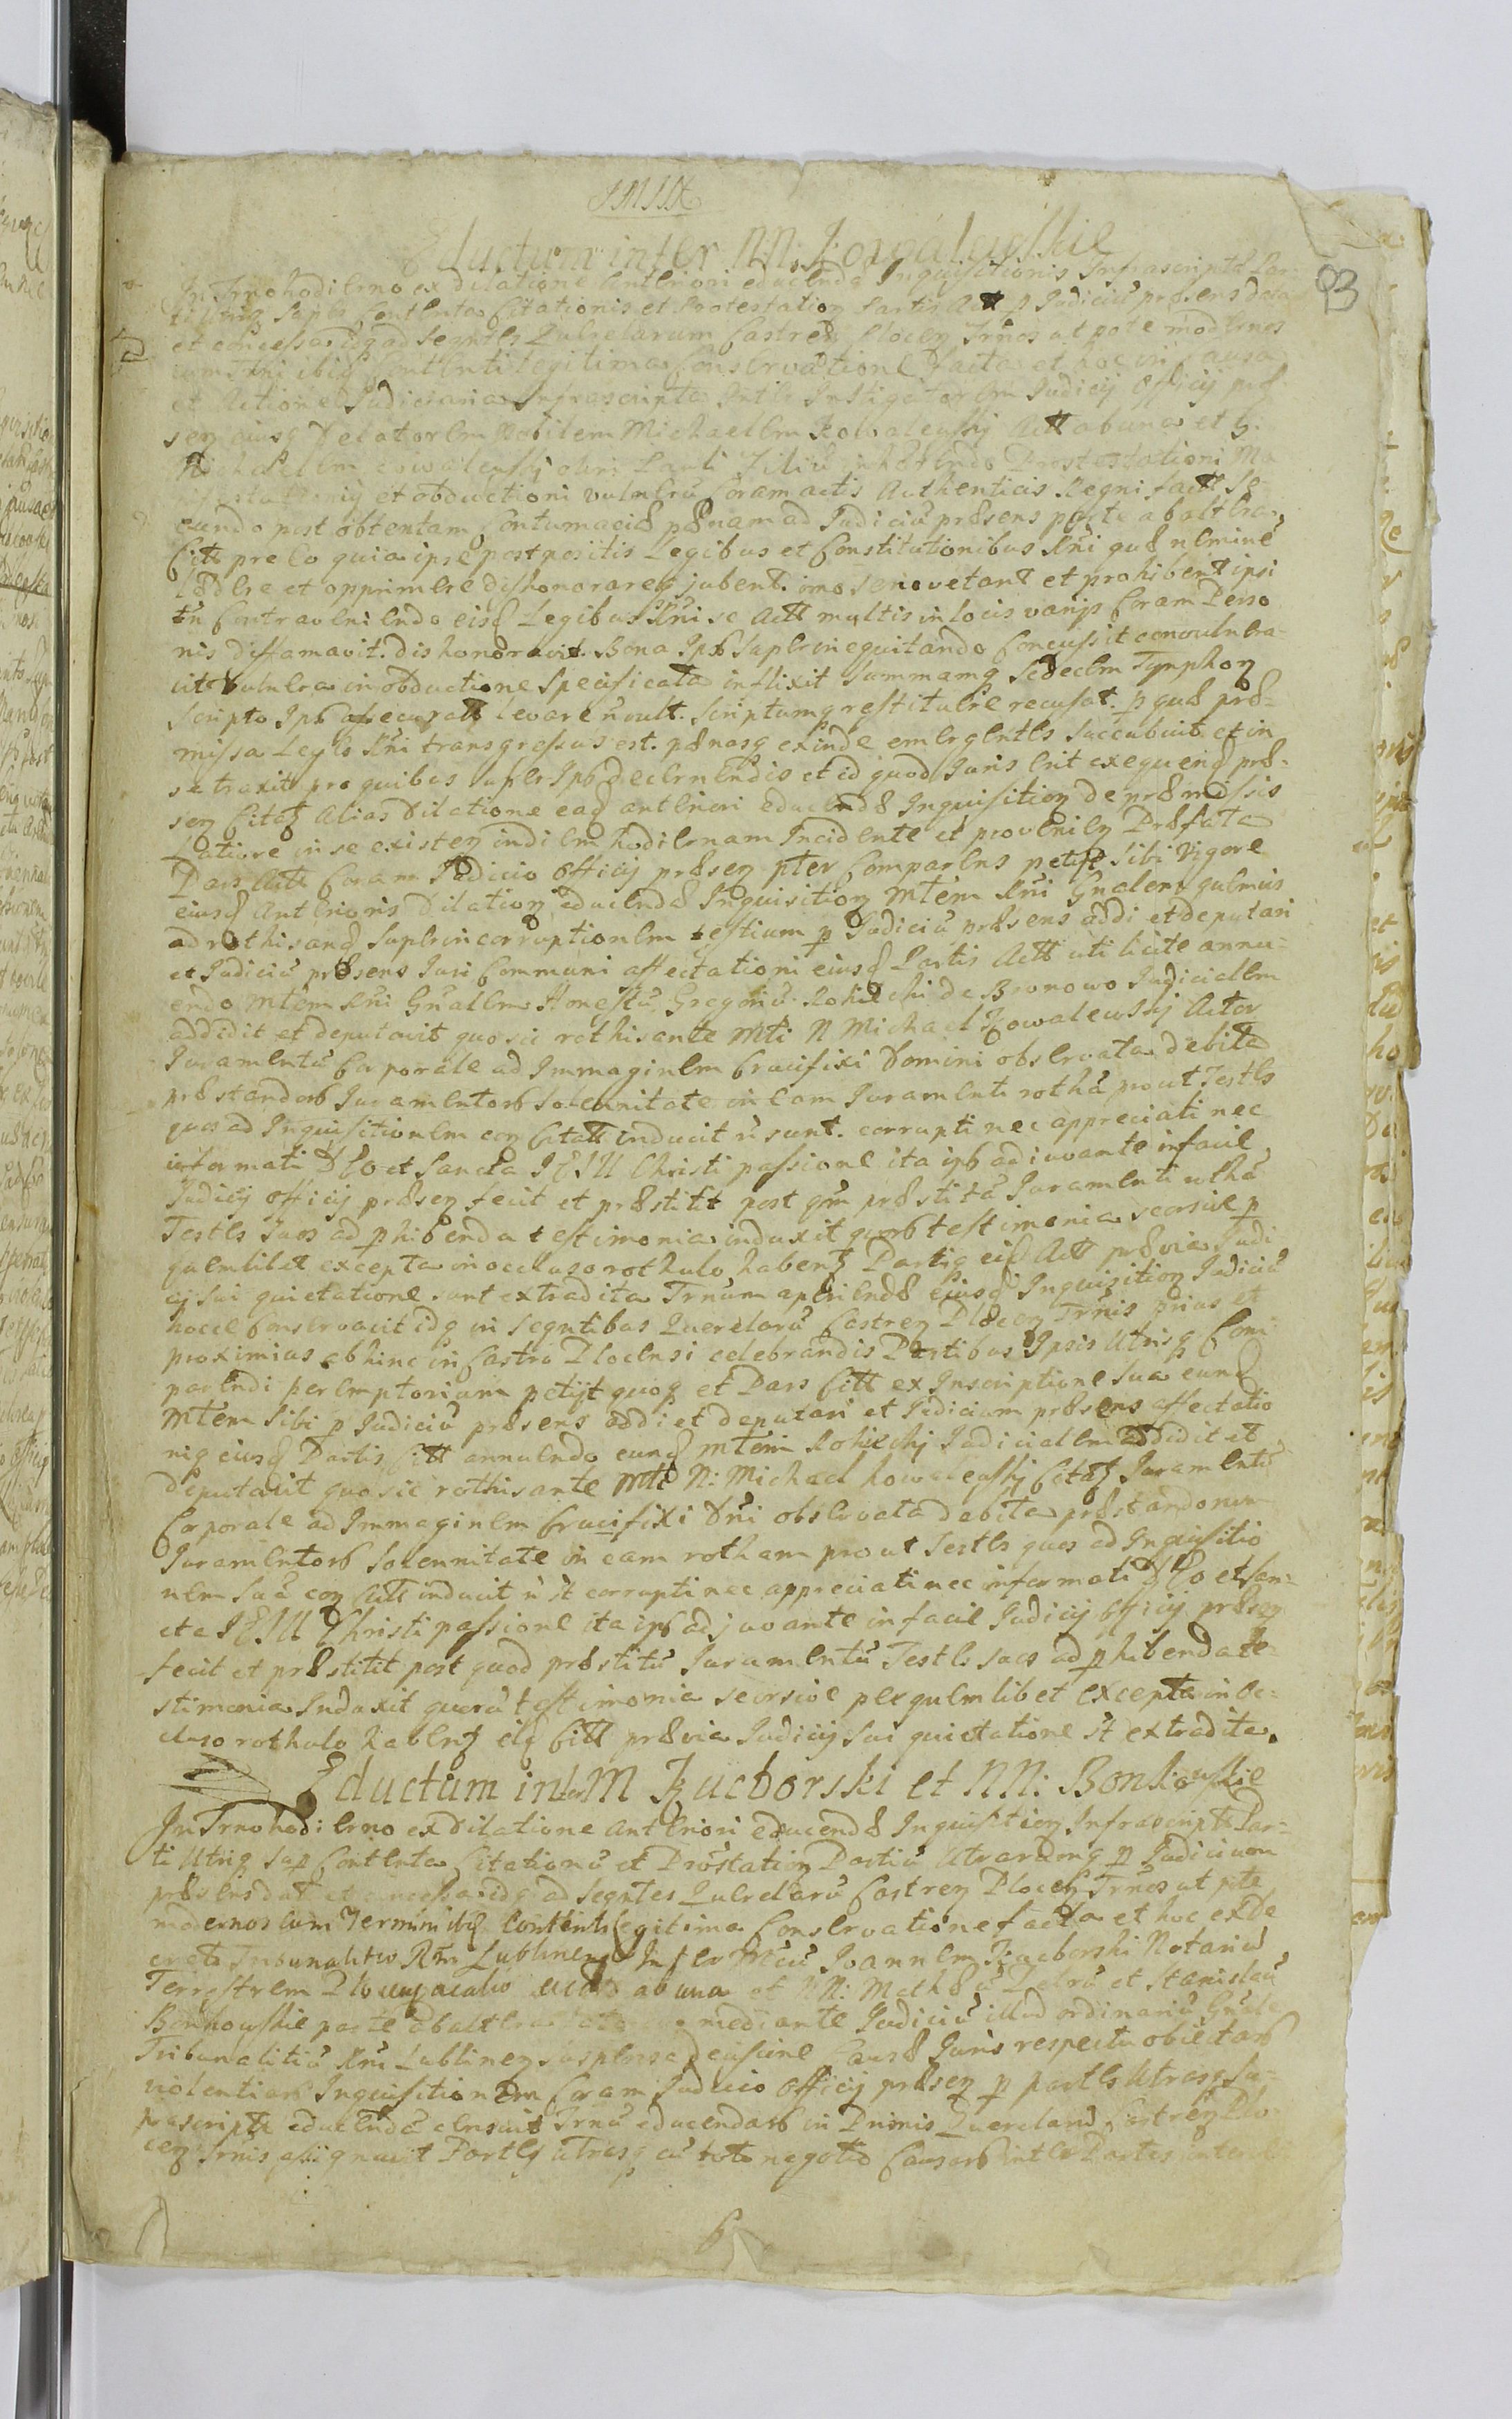 Eductum inter NN: Kowalewskie
93
In Trno hodierno ex dilatione Anteriori educenda Inquisitionis Infrascriptæ Par-
ti Utriq Super Contenta Citationis et Protestation Partis Act p Judiciũ præsens data
et concessa idq ad Seqntes Querelarum Castren Plocen Trnos ut pote modernos
cum Trni ibiq Contenti legitima Conservatione facta et hoc in Causa
et Actione Judiciaria Infrascripta Inter Instigatorem Judicij Officij præ
sen eiusq Delatorem Nobilem Michaelem Kowalewskj Act ab una et G.
Michaelem Kowalewskj olim Pauli Filiũ inhærendo Protestationi Ma
nifestationiq et obductioni vulnerũ Coram actis Authenticis Regni fact Se-
cundo post obtentam Contumaciæ pænam ad Judiciũ præsens parte ab altera
Citt pro eo quia ipse postpositis Legibus et Constitutionibus Rñi quæ neminẽ
lædere et opprimere dishonorareq jubent. imo severe vetant et prohibent ipsi
tñ Contraveniendo eisq Legibus Rñi se Actt multis in locis varijs Coram Perso
nis diffamavit. dishonoravit. Bona Ipse superinequitando Concussit convulnera-
vit vulnera in obductione Specificata inflixit Summamq Sedecim Tynphon
Scripto Ipse levare ñ vult. Scriptumq restituere recusat. p quæ præ-
missa Leges Rñi transgressus est. pænasq exinde emergentes succubuit et in
se traxit pro quibus super Ipso decernendis et id quod Juris erit exequenq præ-
sen Citaq alias dilatione eaq anteriori educendæ Inquisition de præmissis
ratione in se existen in diem hodiernam Incidente et provenien Præfata
Pars Act Coram Judicio Officij præsen pter Comparens petijt Sibi Vigore
eiusq Anterioris dilation educendæ Inquisition Mtem Rñi Gnalem quemvis
ad rothisanq super incorruptionem testium p Judiciũ præsens addi et deputari
et Judiciũ præsens Juri Communi affectationi eiusq Partis Actt uti licite annu-
endo Mtem Rñi Gñalem Honestũ Gregoriũ Rokicki de Bronowo Judicialem
addidit et deputavit quo sic rothisante Mti N Michael Kowalewskj Actor
Juramentũ Corporale ad Immaginem Crucifixi Domini observata debita
præstandorũ Juramentorũ Solennitate in eam Juramenti rothã prout Testes
quos ad Inquisitionem con Citatt inducit ñ sunt. corrupti nec appreciati nec
informati DEO et Sancta IESU Christi passione ita ipso adiuvante in facie
Judicij officij præsen fecit et præstitit post qm præstitũ Juramenti rothã
Testes Suos ad phibenda testimonia induxit quorũ testimonia seorsive p
quemlibet excepta in occluso rothulo habenq Partiq eiq Act prævia Judi
cij sui quietatione sunt extradita Trnum aperiendæ eiusq Inquisition Judiciũ
hocce Conservavit idq in seqntibus Querelarũ Castren Plocen Trnis prius et
proximius abhinc in Castro Plocensi celebrandis Partibus Ipsis Utrisq Com-
parendi peremptorium petijt quoq et Pars Citt ex Inscriptione sua eunq
Mtem Sibi p Judiciũ præsens addi et deputari et Judicium præsens affectatio
niq eiusq Partis Citt annuendo eunq Mtem Rokickj Judicialem addidit et
deputavit quo sic rothisante Mti N: Michael Kowalewskj Citaq Juramentũ
Corporale ad Immaginem Crucifixi Dñi observata debita præstandorum
Juramentorũ Solennitate in eam rotham prout Testes quos ad Inquisitio
nem Suã con Actt inducit ñ st corrupti nec appreciati nec informati DEO et San-
cta IESU Christi passione ita ipso adjuvante in facie Judicij Officij præsen
fecit et præstitit post quod præstitũ Juramentũ Testes suos ad phibenda te-
stimonia Induxit quorũ testimonia seorsive per quemlibet excepta in oc-
cluso rothulo habenq eiq Citt prævia Judicij sui quietatione st extradita.
Eductum inter M Kucborski et NN: Bonkowskie
In Trno hodierno ex dilatione anteriori educendæ Inquisition Infrascriptæ Par-
ti Utriq Sup Contenta Citationũ et Prostation Partiũ Utrarumq p Judicium
præsens dat et concessa idq ad Seqntes Querelarũ Castren Plocen Trnos ut pte
modernos cum Termini ibiq Contenti legitima Conservatione facta et hoc ex De
creto Tribunalitio Rñi Lublinen Inter Mcũ Joannem Kucborski Notariũ
Terrestrem Plocen ab una et NN: Mathæũ Petrũ et Stanislaũ
Bonkowskie parte ab altera mediante Judiciũ illud ordinariũ Gnale
Tribunalitiũ Rñi Lublinen suspensa decisione Causæ Juris respectu obiectarũ
violentiarũ Inquisitionem Coram Judicio Officij præsen p partes Utrasq In-
frascripta educendã censuit Trnũ educendarũ in Primis Querelarũ Castren Plo
cen Trnis assignavit Partes utrasq cũ toto negotio Causarũ inter Partes